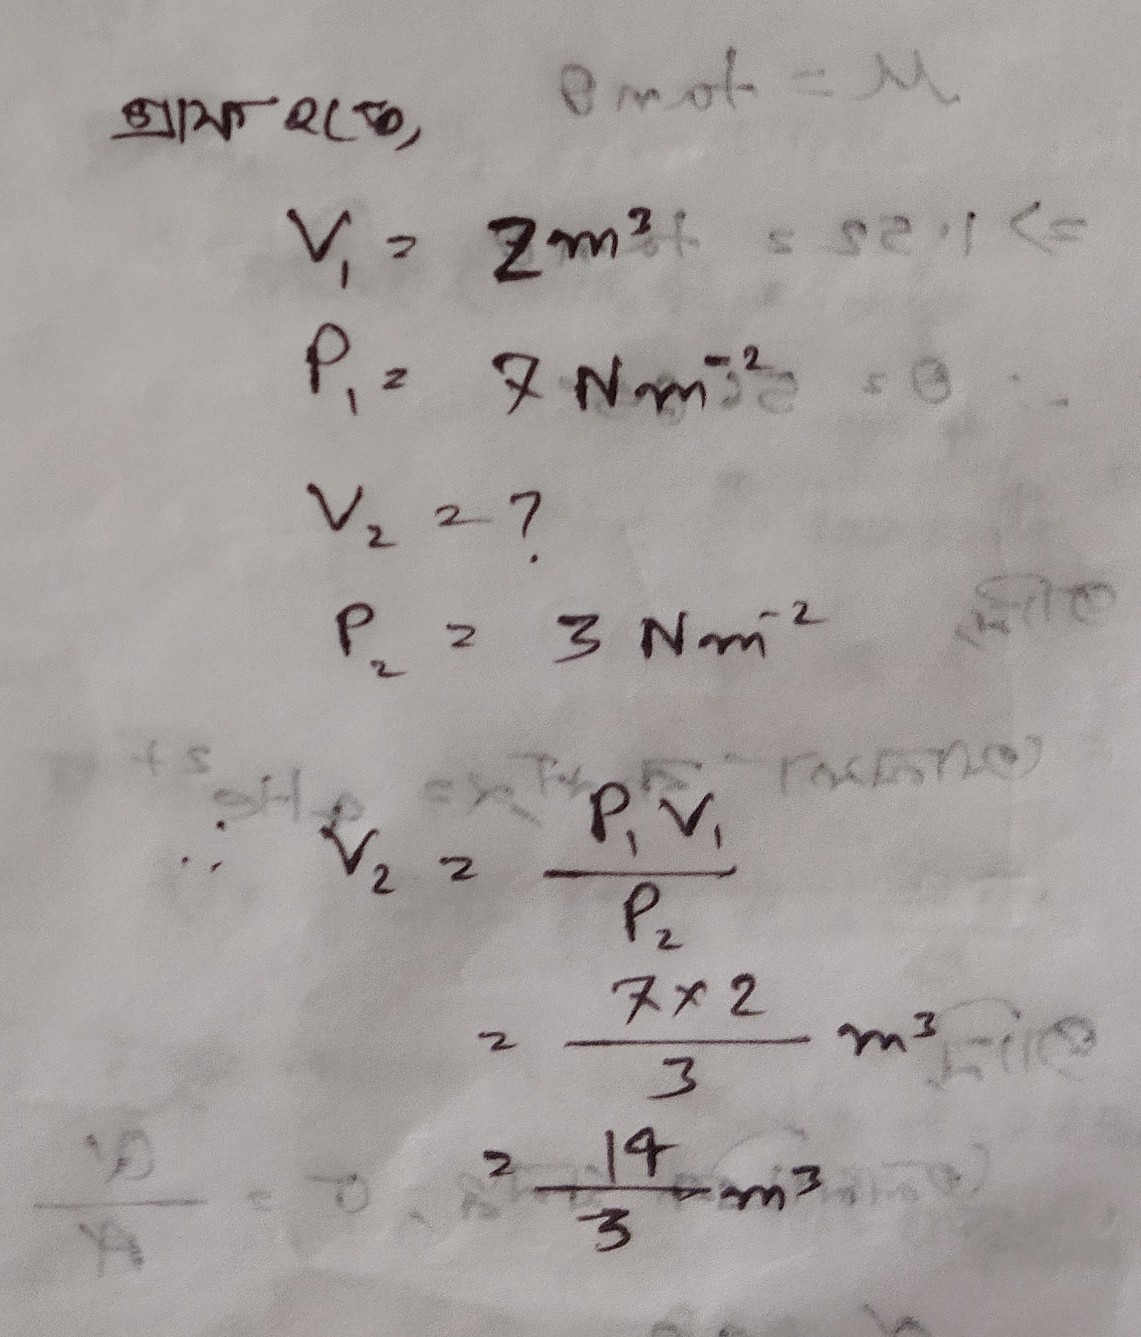 গ্রাফ হতে,
V₁ = 2m³
P₁ = 7 Nm⁻²
V₂ = ?
P₂ = 3 Nm⁻²
∴ V₂ = P₁V₁ / P₂
= 7×2 / 3 m³
= 14 / 3 m³